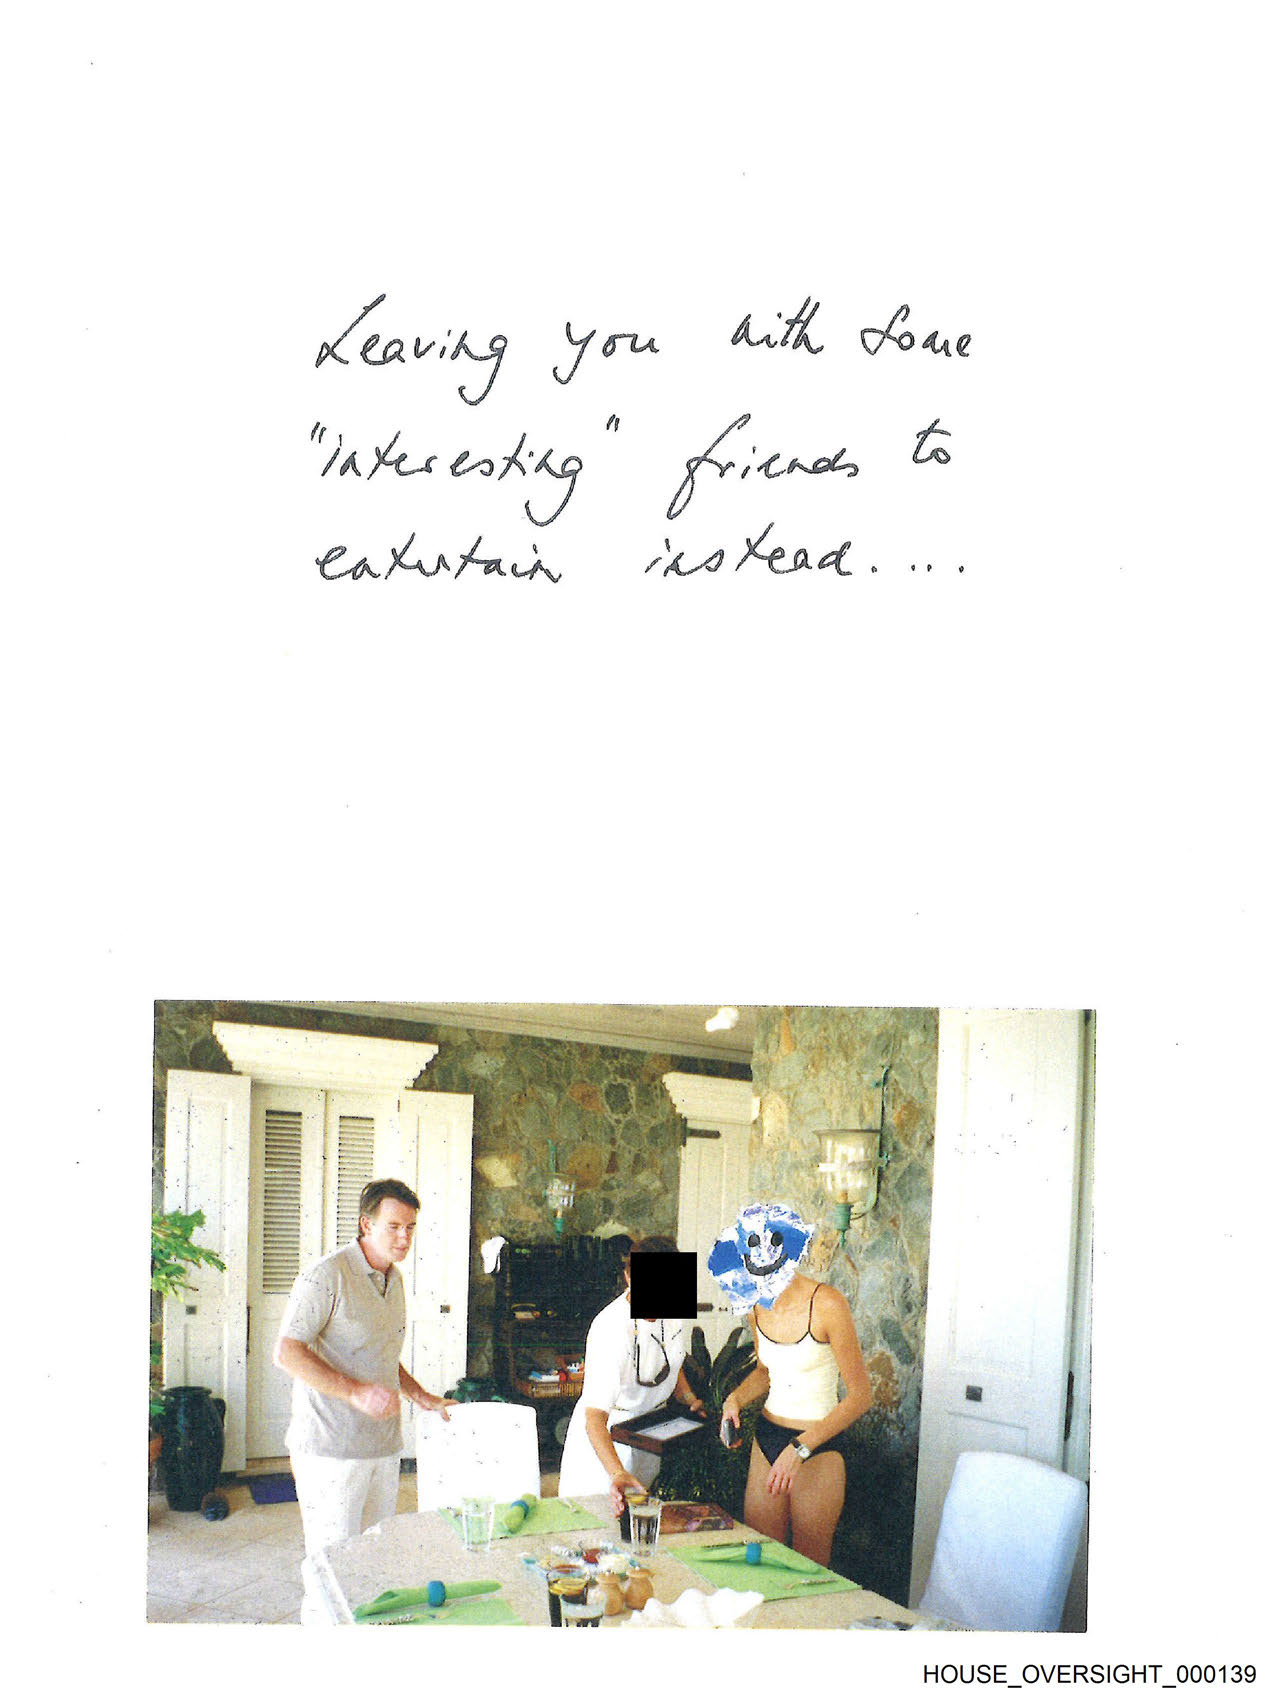 Leaving you with some
"interesting" friends to
entertain instead....
HOUSE_OVERSIGHT_000139